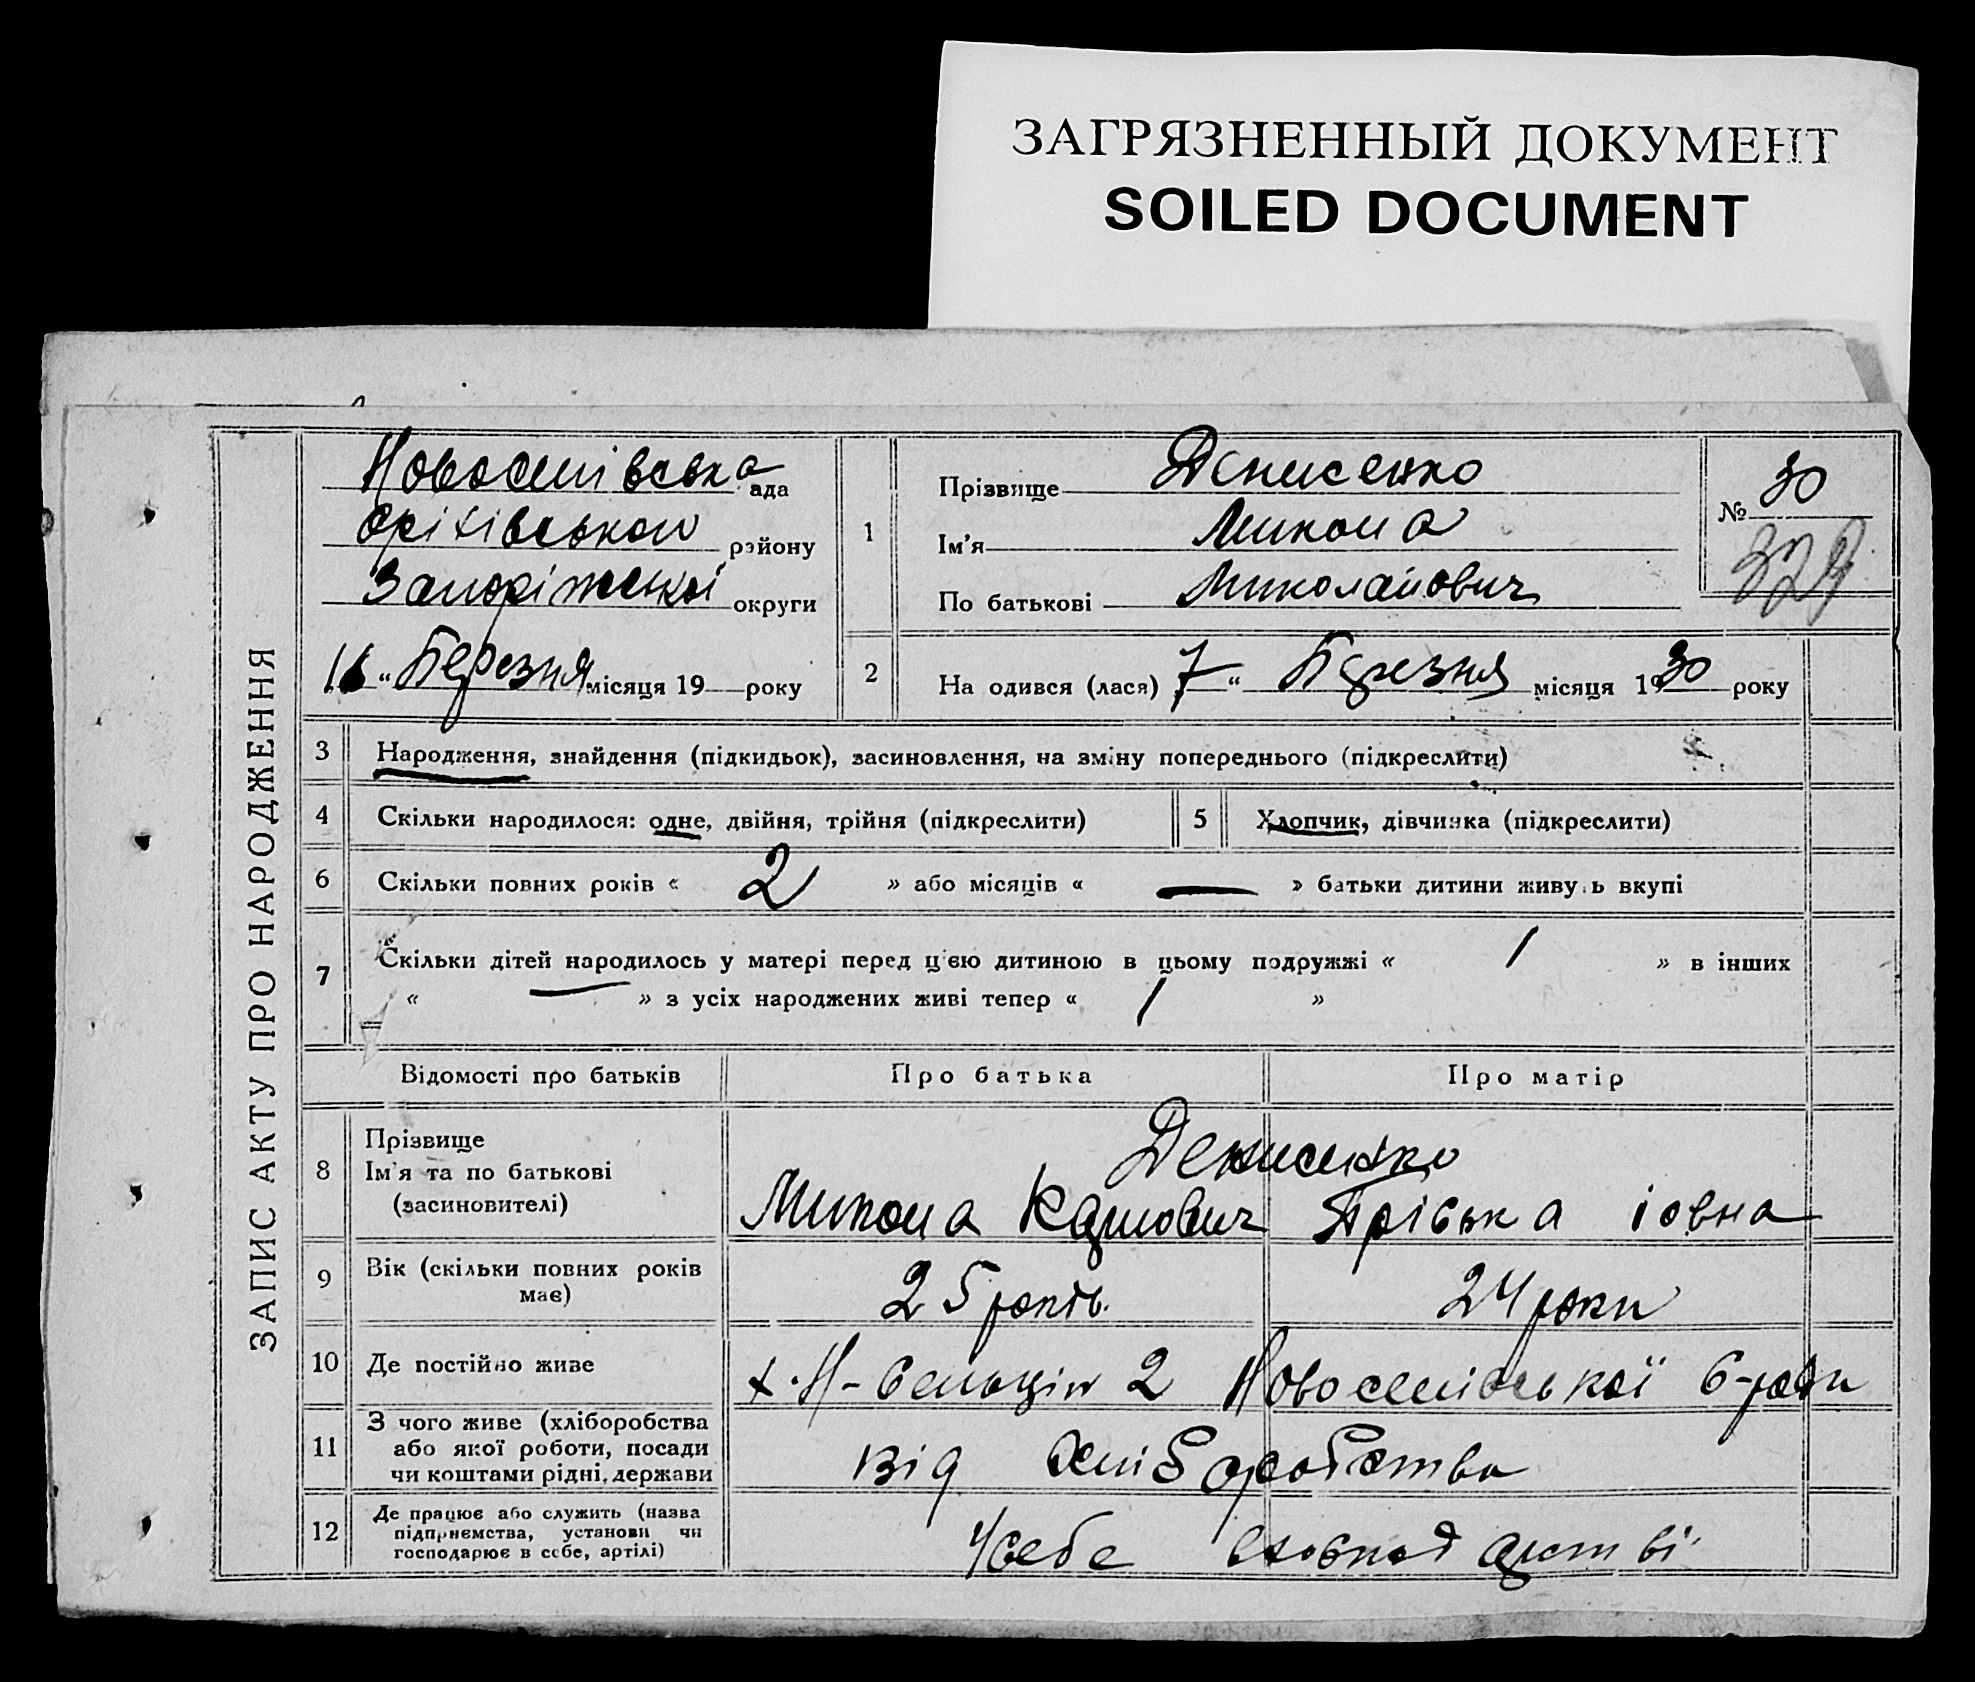 ЗАГРЯЗНЕННЫЙ ДОКУМЕНТ
SOILED DOCUMENT
ЗАПИС АКТУ ПРО НАРОДЖЕННЯ
Новоселівська ада
Оріхівської району
Запоріжської округи
16 " Березня місяця 19 року
1
Прізвище Денисенко
Ім'я Микола
По батькові Миколайович
№ 30
329
2 На одився (лася) 7 " Березня місяця 1930 року
3 Народження, знайдення (підкидьок), засиновлення, на зміну попереднього (підкреслити)
4 Скільки народилося: одне, двійня, трійня (підкреслити) 5 Хлопчик, дівчинка (підкреслити)
6 Скільки повних років « 2 » або місяців « — » батьки дитини живуть вкупі
7 Скільки дітей народилось у матері перед цією дитиною в цьому подружжі « 1 » в інших
« — » з усіх народжених живі тепер « 1 »
Відомості про батьків Про батька Про матір
8 Прізвище
Ім'я та по батькові
(засиновителі)
Денисенко
Микола Карпович Пріська іовна
9 Вік (скільки повних років
має)
25 років. 24 роки
10 Де постійно живе х. Н-Селоцін 2 Новоселівської С-ради
11 З чого живе (хліборобства
або якої роботи, посади
чи коштами рідні, держави
від хліборобства
12 Де працює або служить (назва
підприємства, установи чи
господарює в себе, артілі)
У себе в господарстві